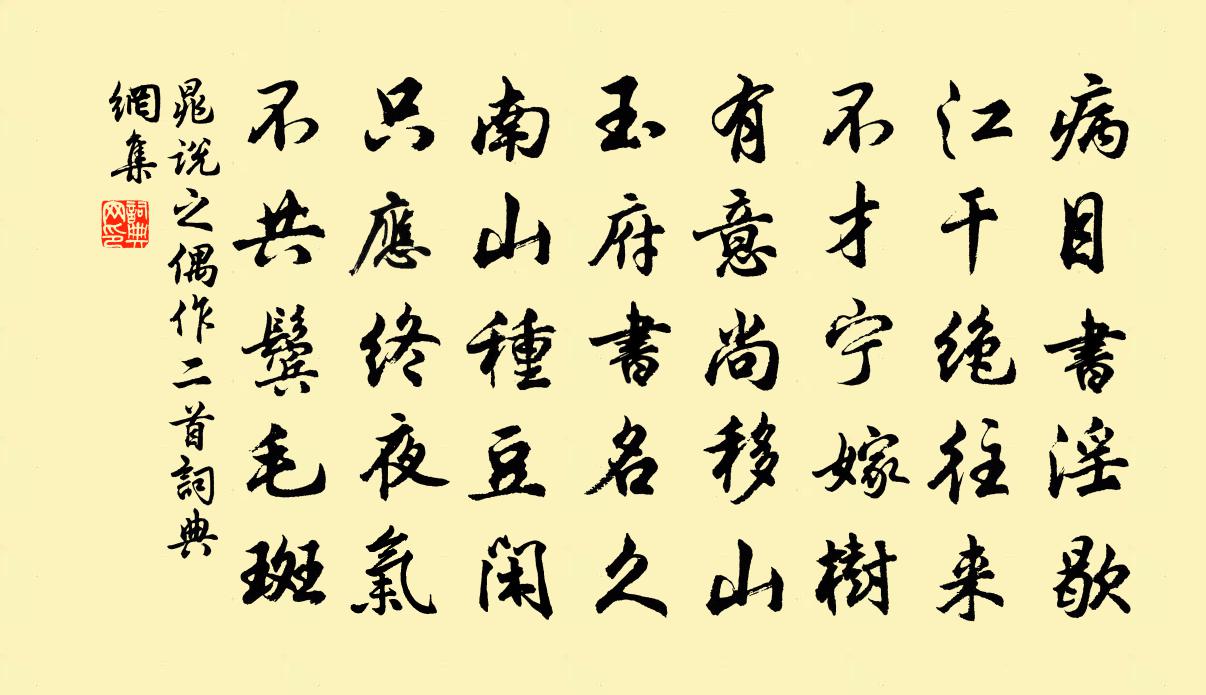 病目書淫歇
江干絕往来
不才宁嫁樹
有意尚移山
玉府書名久
南山種豆閑
只應终夜氣
不共鬢毛斑
晁説之偶作二首詞典
網集
詞典網印